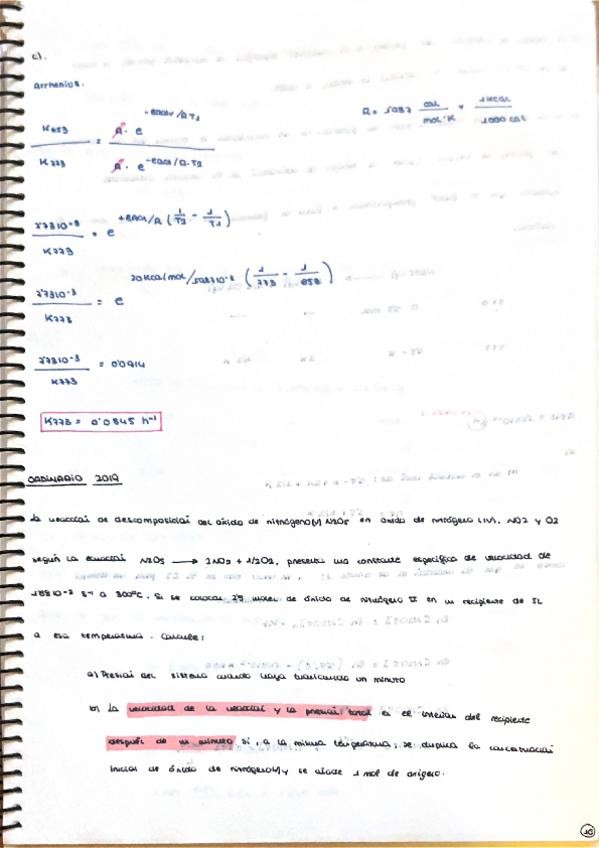 c).
Arrhenius.
K653 / K773 = A · e^-EACT/RT1 / A · e^-EACT/R·T2
R = 1'987 cal / mol·K * 1 kcal / 1000 cal
7'7310-3 / K773 = e^+EACT/R (1/T2 - 1/T1)
7'7310-3 / K773 = e^20Kcal/mol/1'98710-3 (1/773 - 1/653)
7'7310-3 / K773 = 0'0914
K773 = 0'0845 h-1
ORDINARIO 2019
La reacción de descomposición del óxido de nitrógeno(V) N2O5 en óxido de nitrógeno (IV), NO2 y O2
según la ecuación N2O5 → 2NO2 + 1/2O2, presenta una constante específica de velocidad de
s-1 a 300ºC. Si se colocan 2'5 moles de óxido de nitrógeno V en un recipiente de 5L
a esa temperatura. Calcule:
a) Presión del sistema cuando haya transcurrido un minuto
b) La velocidad de la reacción y la presión total en el interior del recipiente
después de un minuto si, a la misma temperatura, se duplica la concentración
inicial de óxido de nitrógeno(V) y se añade 1 mol de oxígeno.
10